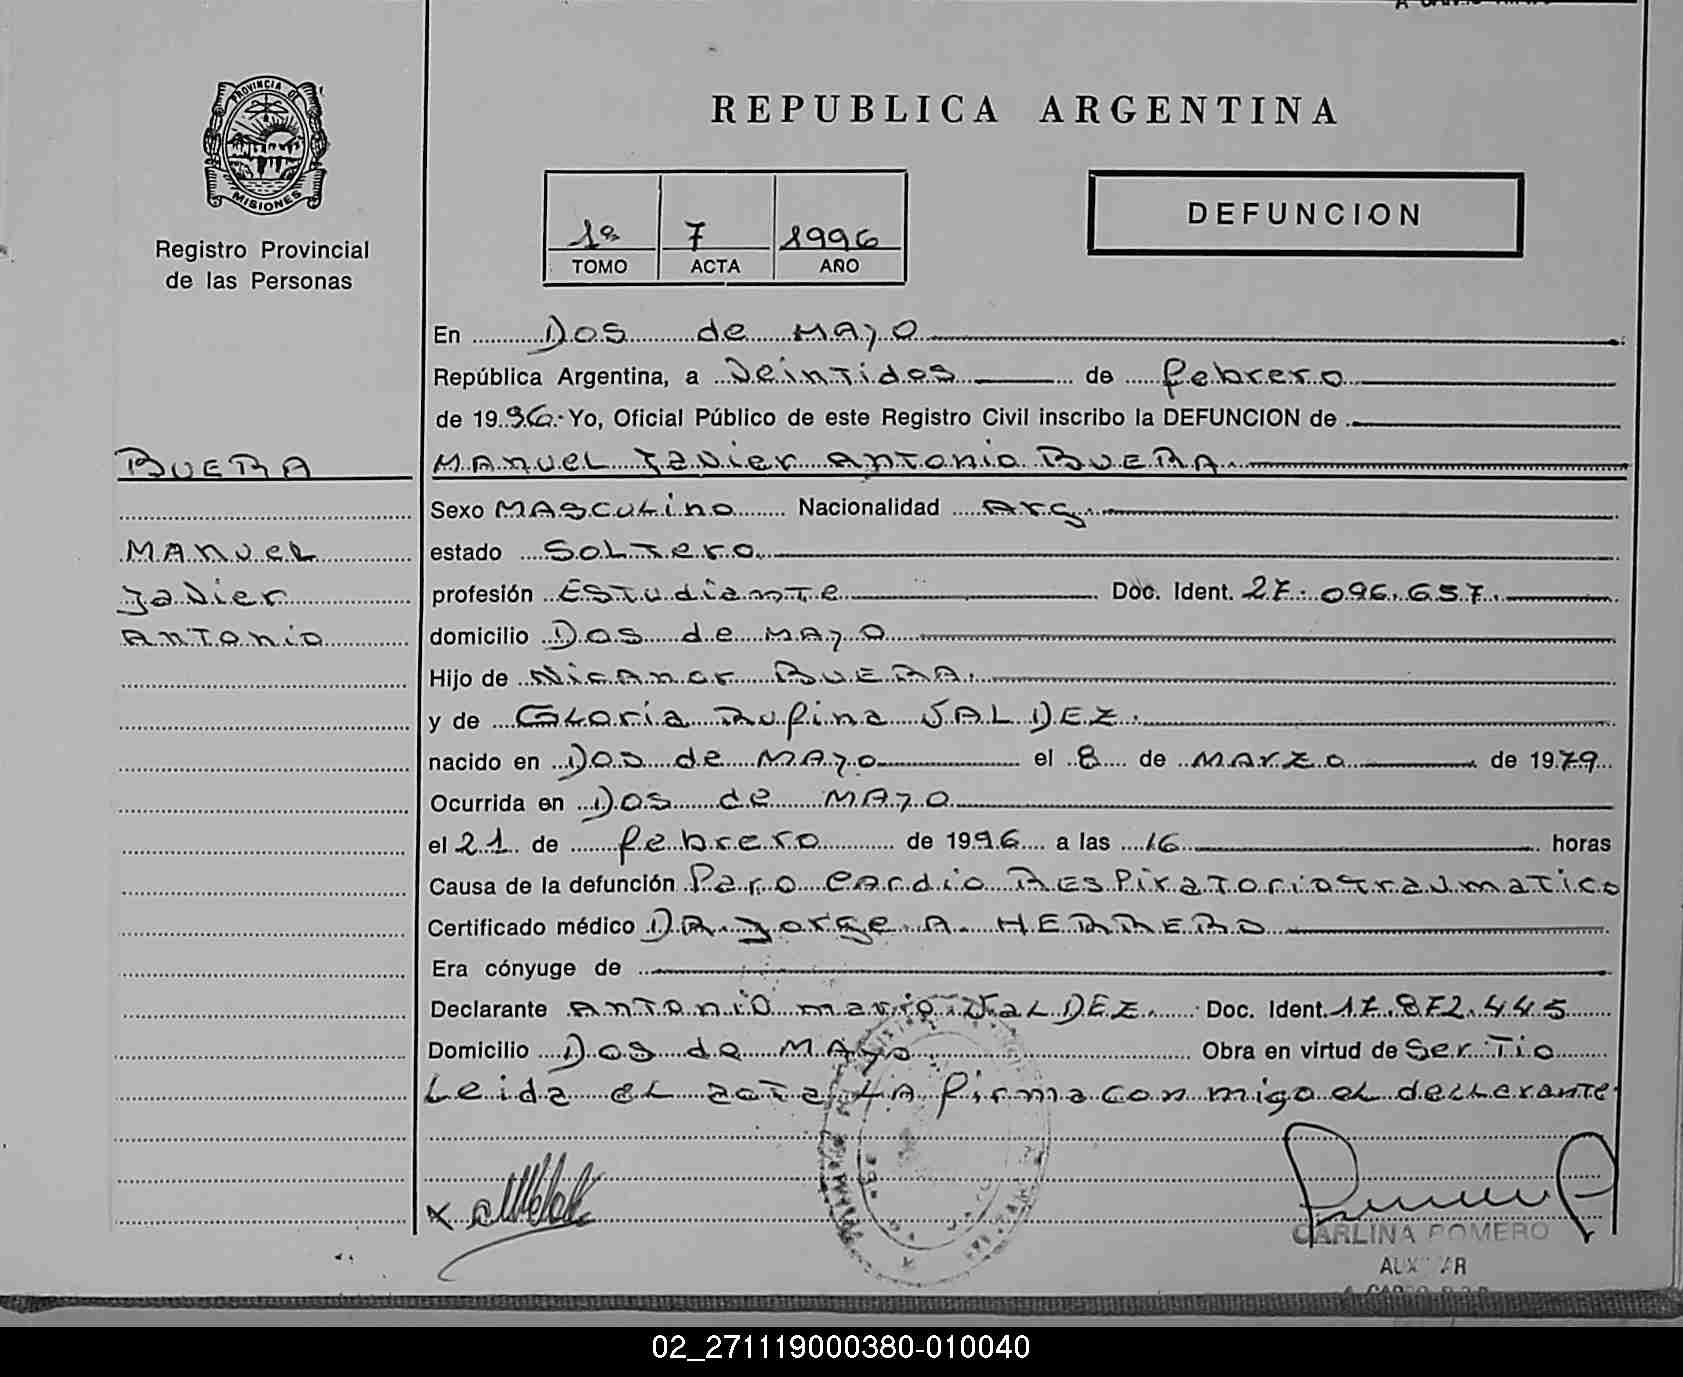 PROVINCIA DE
MISIONES
Registro Provincial
de las Personas
REPUBLICA ARGENTINA
1º 7 1996
TOMO ACTA AÑO
DEFUNCION
En Dos de Mayo
República Argentina, a Veintidos de febrero
de 1996. Yo, Oficial Público de este Registro Civil inscribo la DEFUNCION de
BUERA
Manuel Javier Antonio BUERA.
Sexo Masculino Nacionalidad Arg.
Manuel
estado Soltero.
Javier
profesión Estudiante Doc. Ident. 27.096.657.
Antonio
domicilio Dos de Mayo
Hijo de Nicanor BUERA.
y de Gloria Rufina VALDEZ.
nacido en Dos de Mayo el 8 de Marzo de 1979
Ocurrida en Dos de Mayo
el 21 de febrero de 1996 a las 16 horas
Causa de la defunción Paro Cardio Respiratorio traumatico
Certificado médico DR. Jorge A. HERRERO
Era cónyuge de
Declarante Antonio Mario VALDEZ. Doc. Ident. 17.872.445
Domicilio Dos de Mayo. Obra en virtud de Ser Tio
Leida el acta, la firma conmigo el declarante
CARLINA ROMERO
02_271119000380-010040